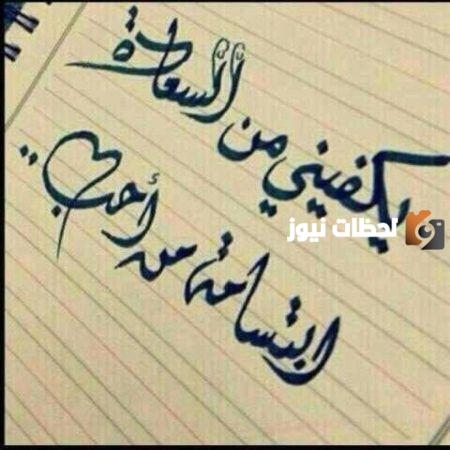 يكفيني من السعادة
ابتسامة من أحب..
لحظات نيوز